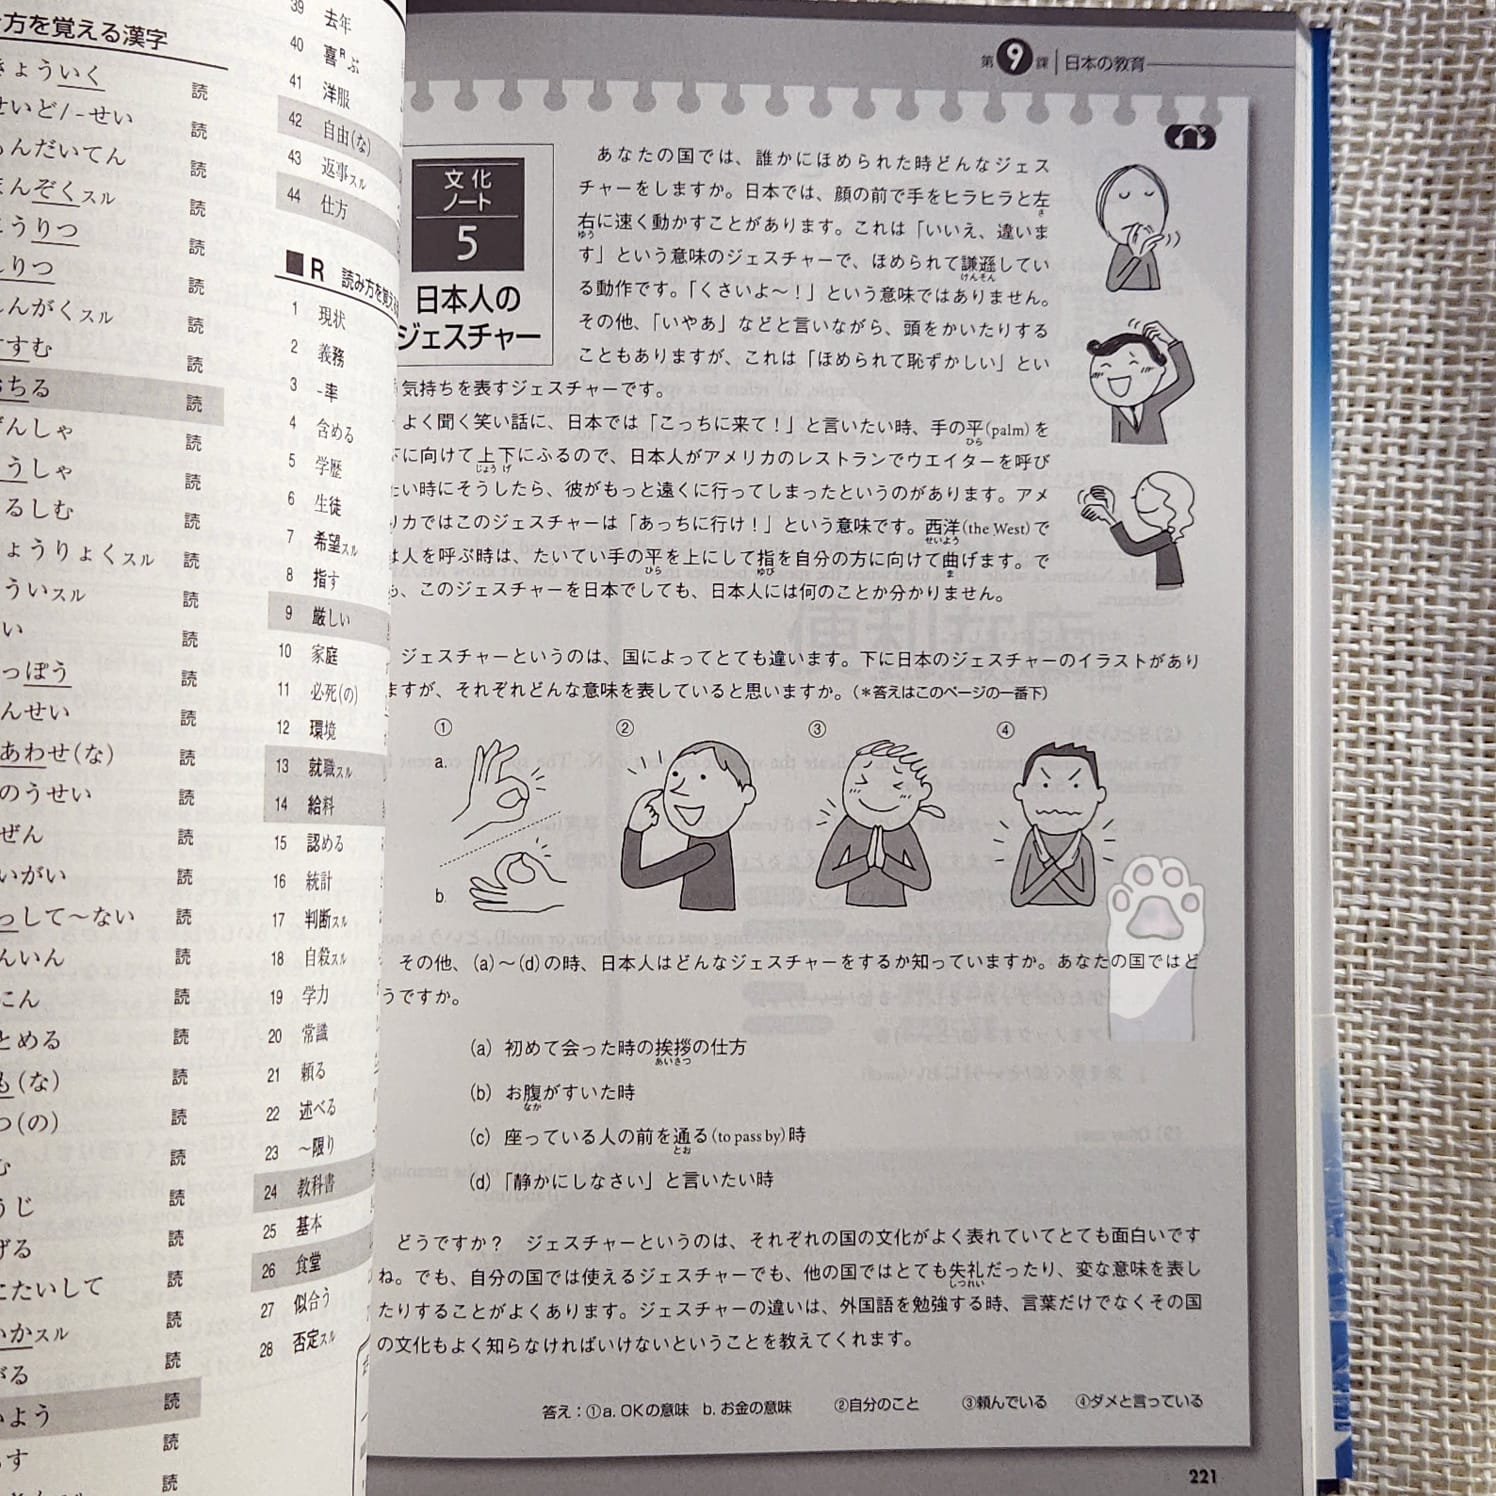 方を覚える漢字
きょういく 読
せいど/-せい 読
もんだいてん 読
まんぞくスル 読
こうりつ 読
しりつ 読
しんがくスル 読
すすむ 読
おちる 読
ぜんしゃ 読
こうしゃ 読
くるしむ 読
きょうりょくスル 読
読
読
読
読
あわせ(な) 読
読
読
読
けっして～ない 読
読
読
読
読
読
読
読
読
読
読
読
読
読
39 去年
40 喜Rぶ
41 洋服
42 自由(な)
43 返事スル
44 仕方
■R 読み方を覚え
1 現状
2 義務
3 -率
4 含める
5 学歴
6 生徒
7 希望スル
8 指す
9 厳しい
10 家庭
11 必死(の)
12 環境
13 就職スル
14 給料
15 認める
16 統計
17 判断スル
18 自殺スル
19 学力
20 常識
21 頼る
22 述べる
23 ～限り
24 教科書
25 基本
26 食堂
27 似合う
28 否定スル
第9課 日本の教育
文化
ノート
5
日本人の
ジェスチャー
あなたの国では、誰かにほめられた時どんなジェス
チャーをしますか。日本では、顔の前で手をヒラヒラと左
さ
右に速く動かすことがあります。これは「いいえ、違いま
ゆう
す」という意味のジェスチャーで、ほめられて謙遜してい
けんそん
る動作です。「くさいよ〜！」という意味ではありません。
その他、「いやあ」などと言いながら、頭をかいたりする
こともありますが、これは「ほめられて恥ずかしい」とい
う気持ちを表すジェスチャーです。
よく聞く笑い話に、日本では「こっちに来て！」と言いたい時、手の平(palm)を
ひら
下に向けて上下にふるので、日本人がアメリカのレストランでウエイターを呼び
じょうげ
たい時にそうしたら、彼がもっと遠くに行ってしまったというのがあります。アメ
リカではこのジェスチャーは「あっちに行け！」という意味です。西洋(the West)で
せいよう
は人を呼ぶ時は、たいてい手の平を上にして指を自分の方に向けて曲げます。で
ひら ゆび ま
も、このジェスチャーを日本でしても、日本人には何のことか分かりません。
ジェスチャーというのは、国によってとても違います。下に日本のジェスチャーのイラストがあり
ますが、それぞれどんな意味を表していると思いますか。(＊答えはこのページの一番下)
① ② ③ ④
a.
b.
その他、(a)〜(d)の時、日本人はどんなジェスチャーをするか知っていますか。あなたの国ではど
うですか。
(a) 初めて会った時の挨拶の仕方
あいさつ
(b) お腹がすいた時
なか
(c) 座っている人の前を通る(to pass by)時
とお
(d) 「静かにしなさい」と言いたい時
どうですか？ ジェスチャーというのは、それぞれの国の文化がよく表れていてとても面白いです
ね。でも、自分の国では使えるジェスチャーでも、他の国ではとても失礼だったり、変な意味を表し
しつれい
たりすることがよくあります。ジェスチャーの違いは、外国語を勉強する時、言葉だけでなくその国
の文化もよく知らなければいけないということを教えてくれます。
答え：①a. OKの意味 b. お金の意味 ②自分のこと ③頼んでいる ④ダメと言っている
221